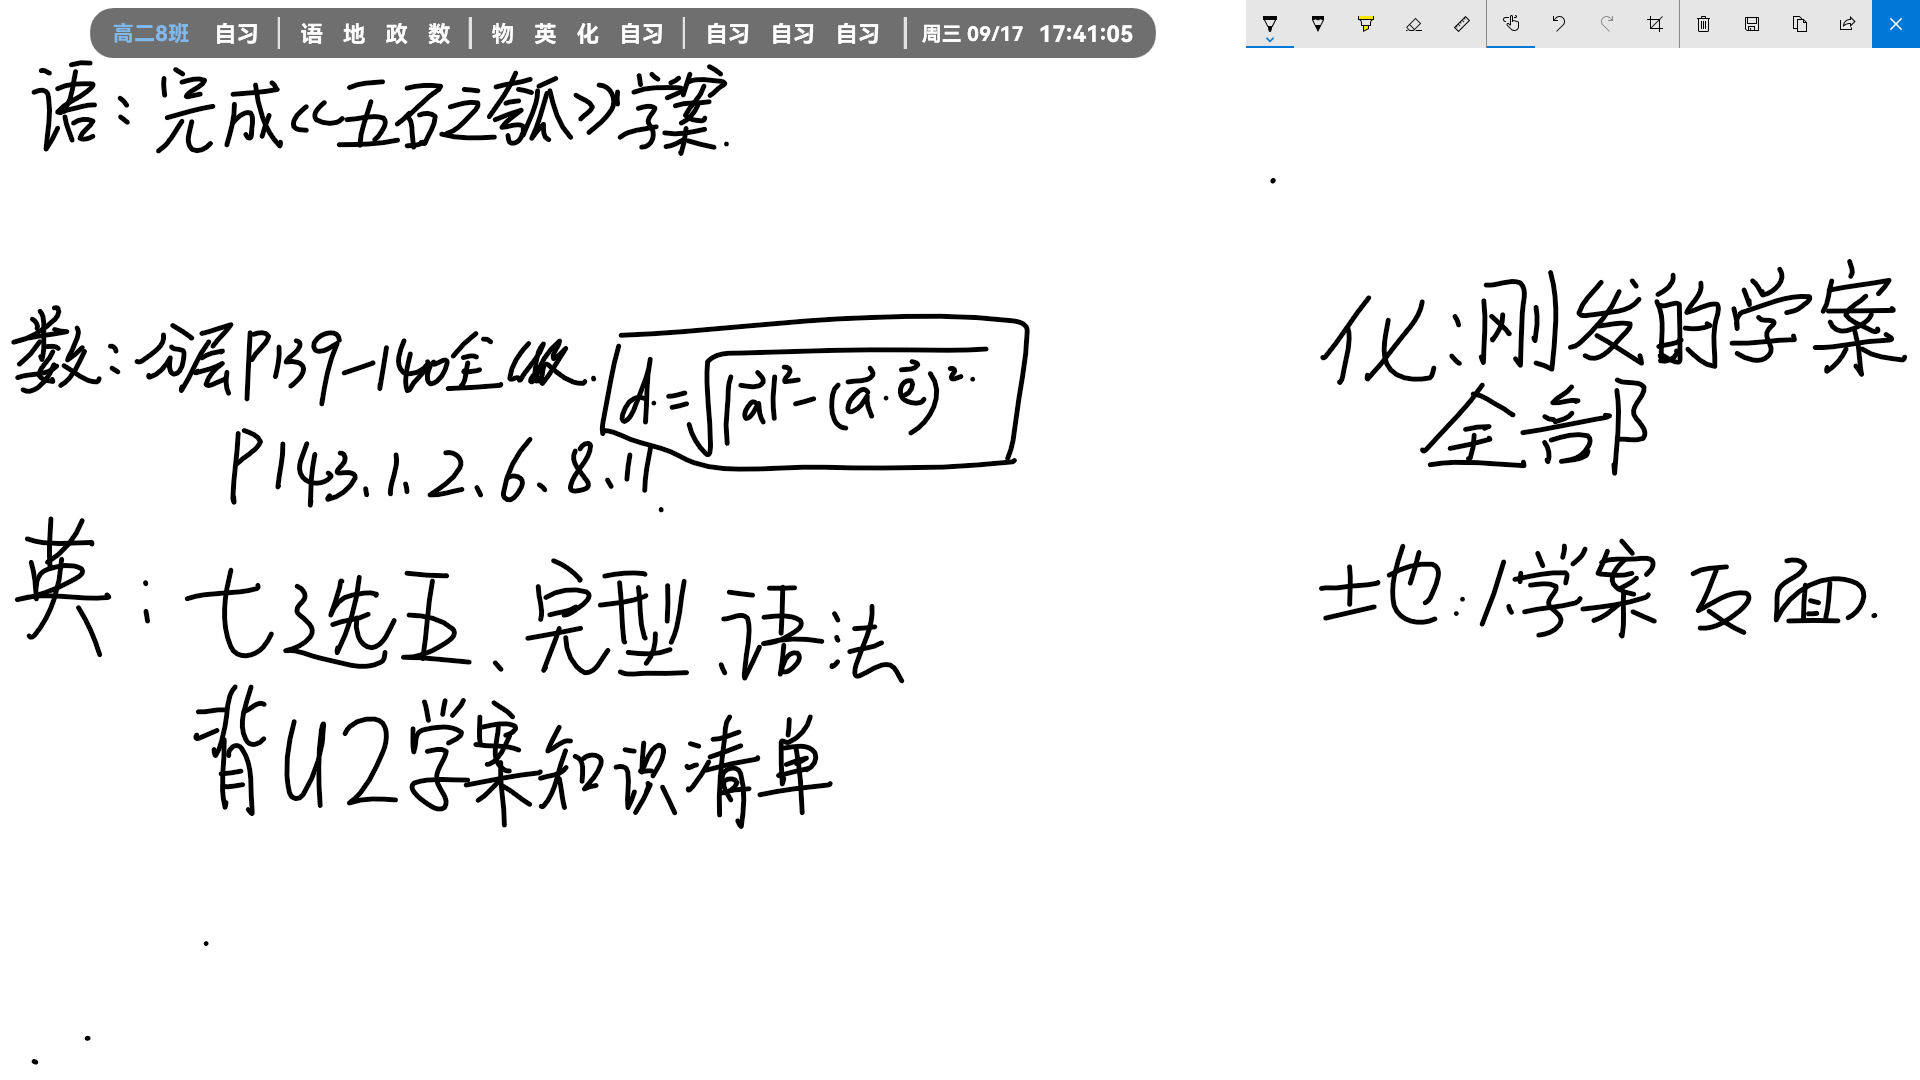 高二8班 自习 | 语 地 政 数 | 物 英 化 自习 | 自习 自习 自习 | 周三 09/17 17:41:05
语:完成《五石之瓠》学案.
数:分层P139-140全做.
d=√|a⃗|²-(a⃗·e⃗)².
P143、1、2、6、8、11
英:七选五、完型、语法
背U2学案知识清单
化:刚发的学案
全部
地:1.学案反面.